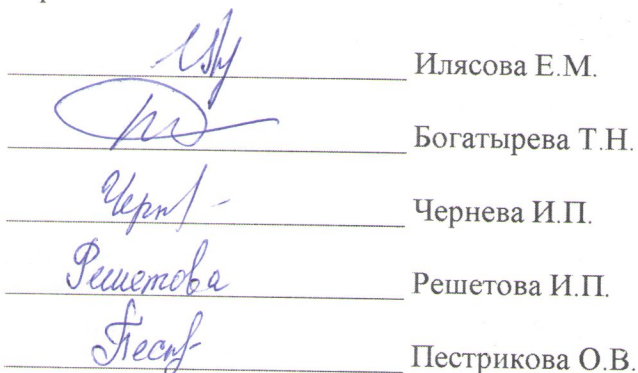 Илясова Е.М.
Богатырева Т.Н.
Черн Чернева И.П.
Решетова Решетова И.П.
Пест Пестрикова О.В.